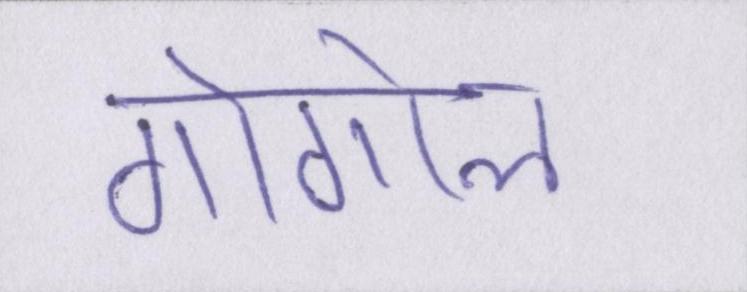 गोगोल